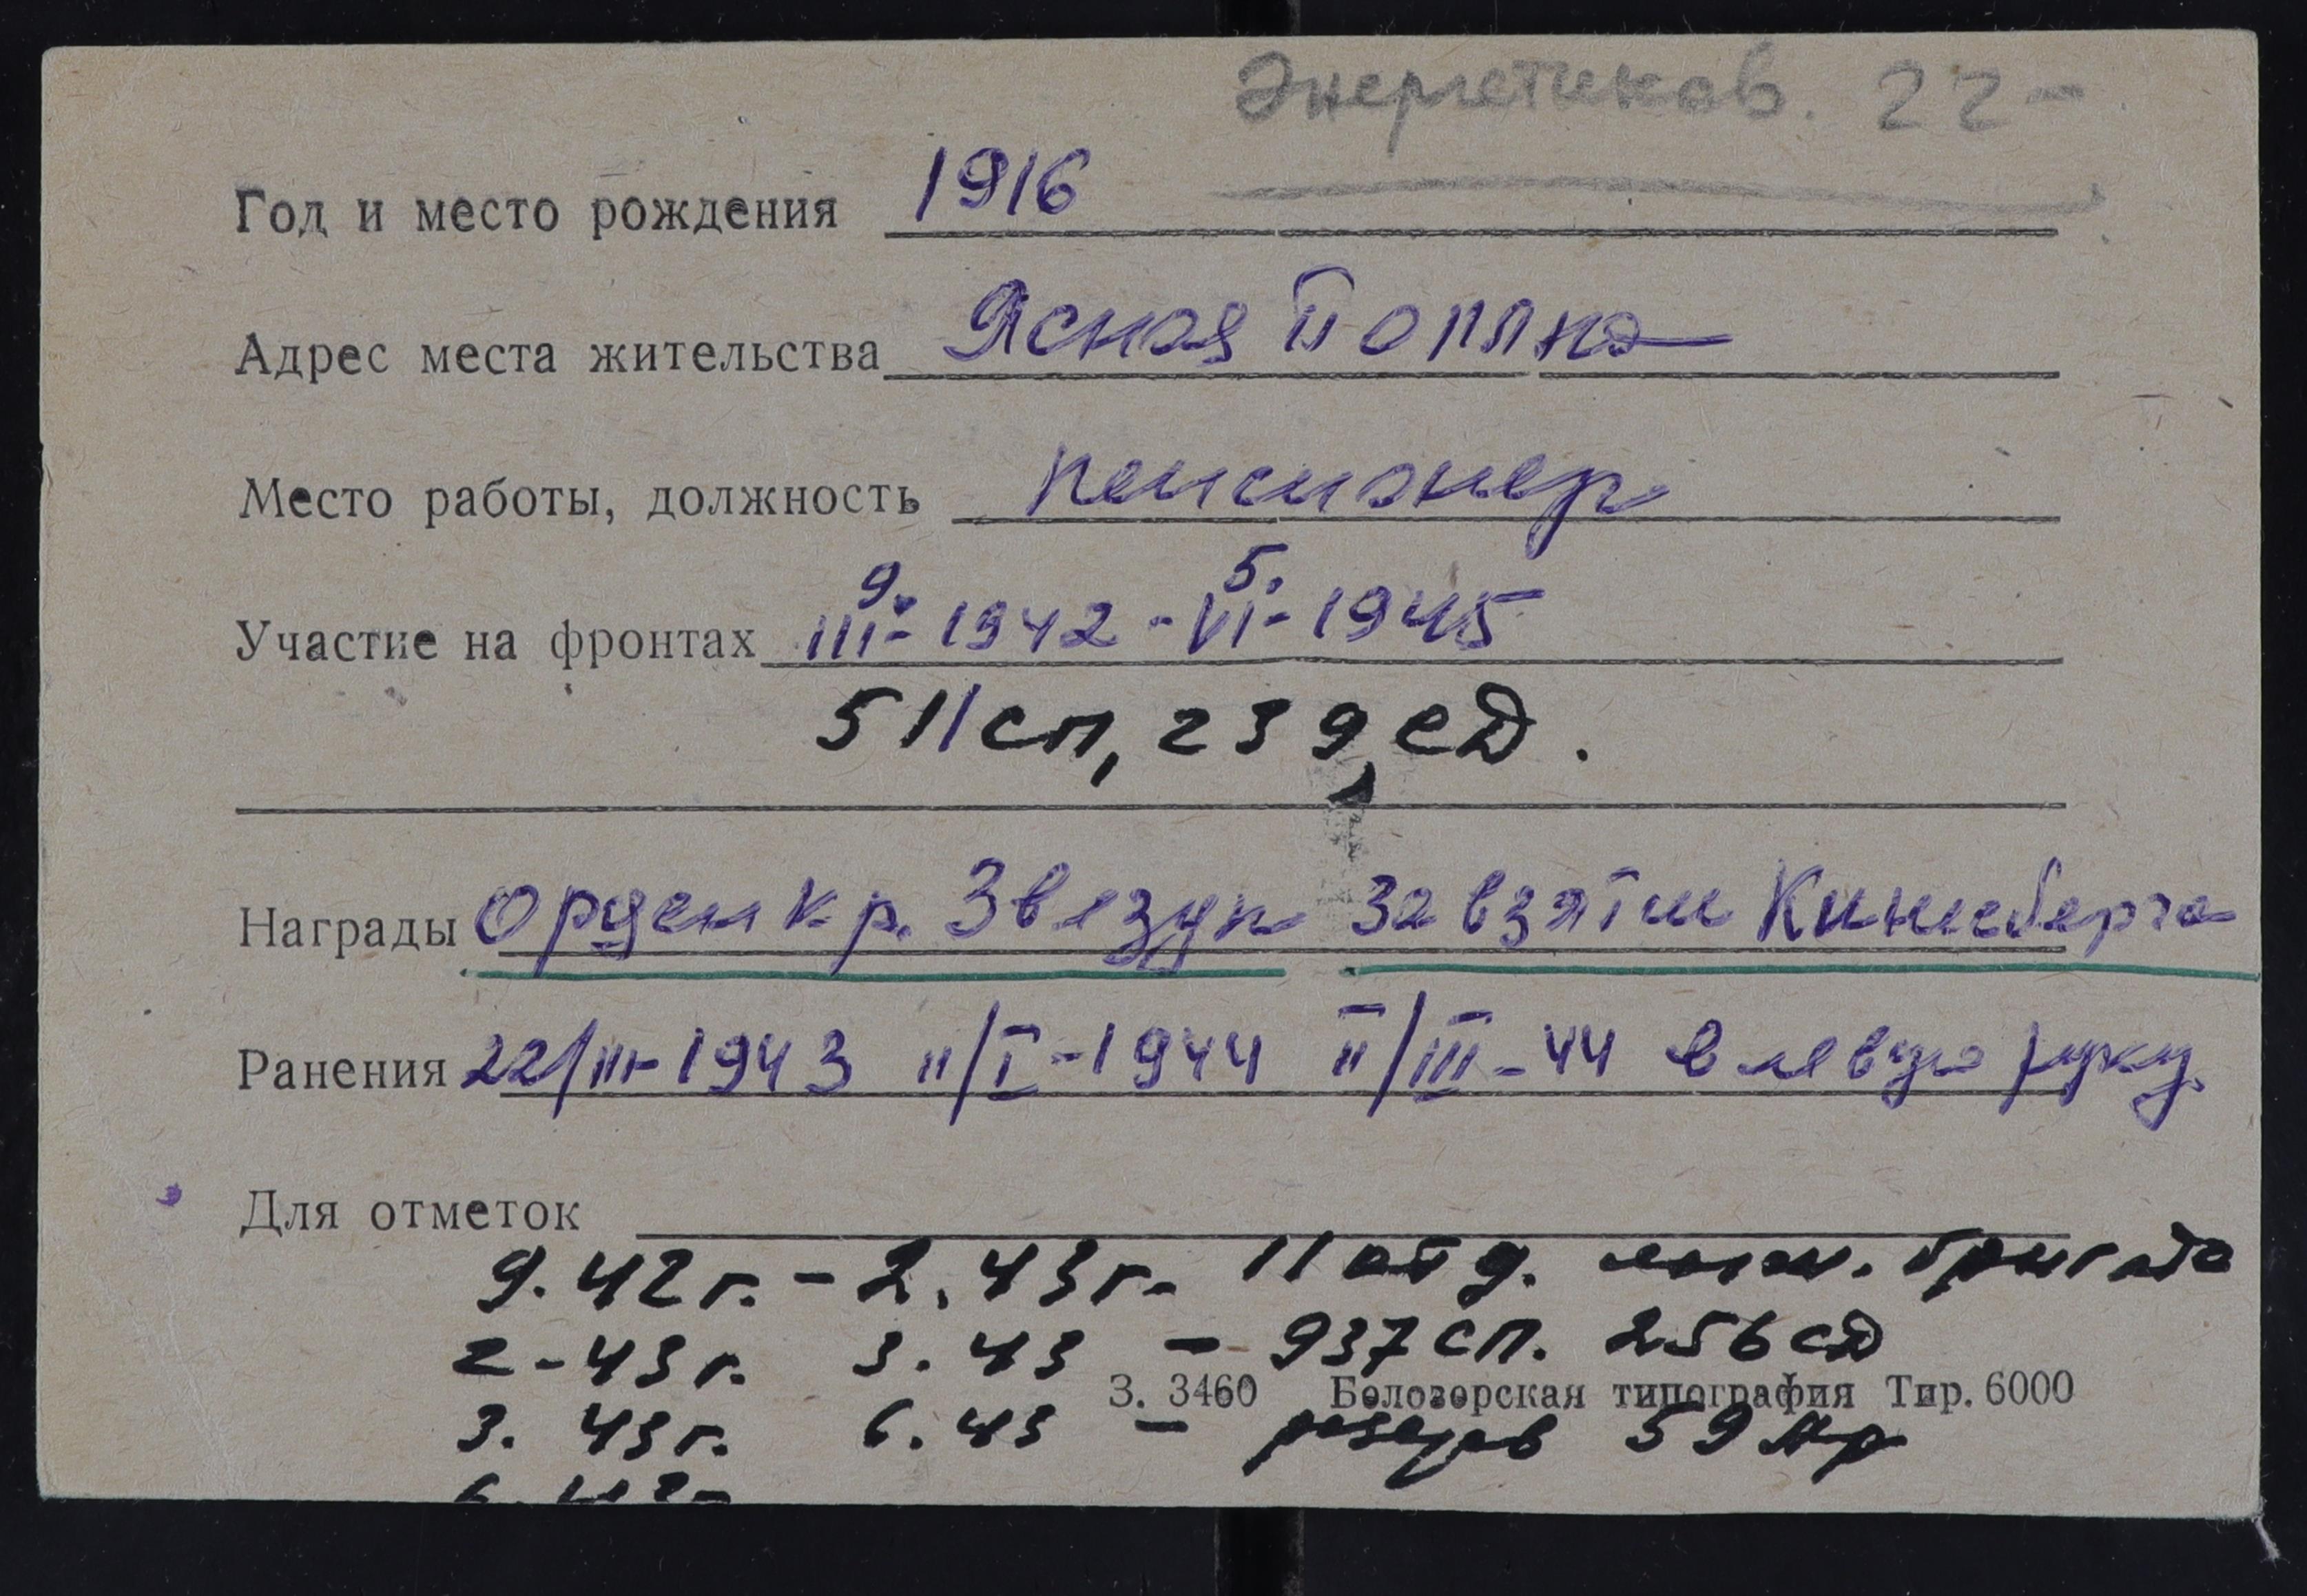 Энергетиков. 22 –
Год и место рождения 1916
Адрес места жительства Ясная Поляна
Место работы, должность пенсионер
9. 5.
Участие на фронтах III - 1942 - VI - 1945
511 сп, 239 сд.
Награды Орден кр. Звезды За взятии Кинисберга
Ранения 22/III-1943 11/I-1944 11/III-44 в левую руку
Для отметок
9.42 г. - 2.43 г. 11 отд. бригада
2-43 г. 3.43 - 937 сп. 256 сд
З. 3460 Белозерская типография Тир. 6000
3. 43 г. 6.43 - резерв 59